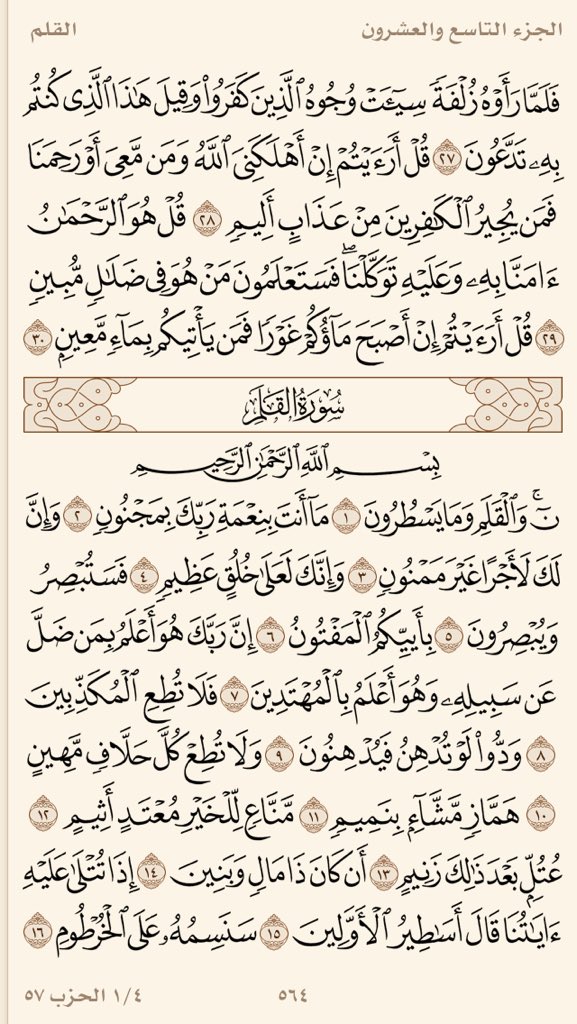 الجزء التاسع والعشرون
القلم
فَلَمَّا رَأَوْهُ زُلْفَةً سِيٓـَٔتْ وُجُوهُ ٱلَّذِينَ كَفَرُوا۟ وَقِيلَ هَٰذَا ٱلَّذِى كُنتُم
بِهِۦ تَدَّعُونَ ٢٧ قُلْ أَرَءَيْتُمْ إِنْ أَهْلَكَنِىَ ٱللَّهُ وَمَن مَّعِىَ أَوْ رَحِمَنَا
فَمَن يُجِيرُ ٱلْكَٰفِرِينَ مِنْ عَذَابٍ أَلِيمٍ ٢٨ قُلْ هُوَ ٱلرَّحْمَٰنُ
ءَامَنَّا بِهِۦ وَعَلَيْهِ تَوَكَّلْنَا ۖ فَسَتَعْلَمُونَ مَنْ هُوَ فِى ضَلَٰلٍ مُّبِينٍ
٢٩ قُلْ أَرَءَيْتُمْ إِنْ أَصْبَحَ مَآؤُكُمْ غَوْرًا فَمَن يَأْتِيكُم بِمَآءٍ مَّعِينٍۭ ٣٠
سُورَةُ القَلَمِ
بِسْمِ ٱللَّهِ ٱلرَّحْمَٰنِ ٱلرَّحِيمِ
نٓ ۚ وَٱلْقَلَمِ وَمَا يَسْطُرُونَ ١ مَآ أَنتَ بِنِعْمَةِ رَبِّكَ بِمَجْنُونٍ ٢ وَإِنَّ
لَكَ لَأَجْرًا غَيْرَ مَمْنُونٍ ٣ وَإِنَّكَ لَعَلَىٰ خُلُقٍ عَظِيمٍ ٤ فَسَتُبْصِرُ
وَيُبْصِرُونَ ٥ بِأَييِّكُمُ ٱلْمَفْتُونُ ٦ إِنَّ رَبَّكَ هُوَ أَعْلَمُ بِمَن ضَلَّ
عَن سَبِيلِهِۦ وَهُوَ أَعْلَمُ بِٱلْمُهْتَدِينَ ٧ فَلَا تُطِعِ ٱلْمُكَذِّبِينَ
٨ وَدُّوا۟ لَوْ تُدْهِنُ فَيُدْهِنُونَ ٩ وَلَا تُطِعْ كُلَّ حَلَّافٍ مَّهِينٍ
١٠ هَمَّازٍ مَّشَّآءٍۭ بِنَمِيمٍ ١١ مَّنَّاعٍ لِّلْخَيْرِ مُعْتَدٍ أَثِيمٍ ١٢
عُتُلٍّۭ بَعْدَ ذَٰلِكَ زَنِيمٍ ١٣ أَن كَانَ ذَا مَالٍ وَبَنِينَ ١٤ إِذَا تُتْلَىٰ عَلَيْهِ
ءَايَٰتُنَا قَالَ أَسَٰطِيرُ ٱلْأَوَّلِينَ ١٥ سَنَسِمُهُۥ عَلَى ٱلْخُرْطُومِ ١٦
٥٦٤
١/٤ الحزب ٥٧